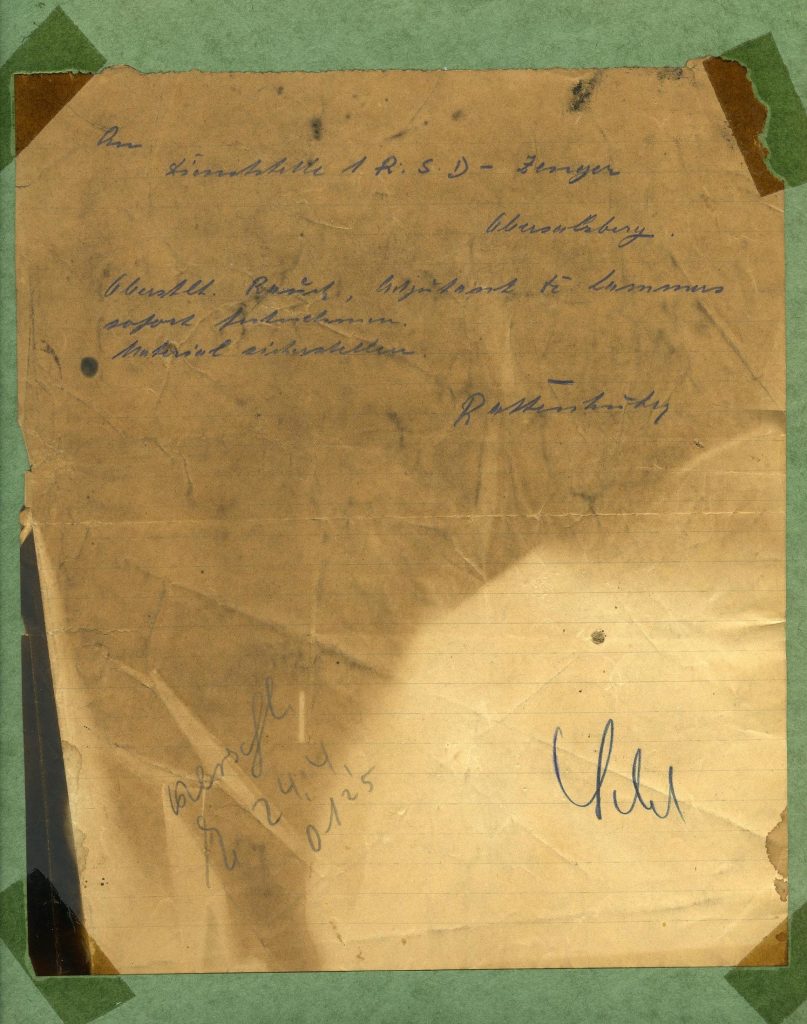 An
Dienststelle 1 R. S. D - Zenger
Obersalzberg.
Oberstlt. Rauch, Adjutant Dr Lammers
sofort festnehmen.
Material sicherstellen.
Rattenhuber
verschl.
24. 4.
0125